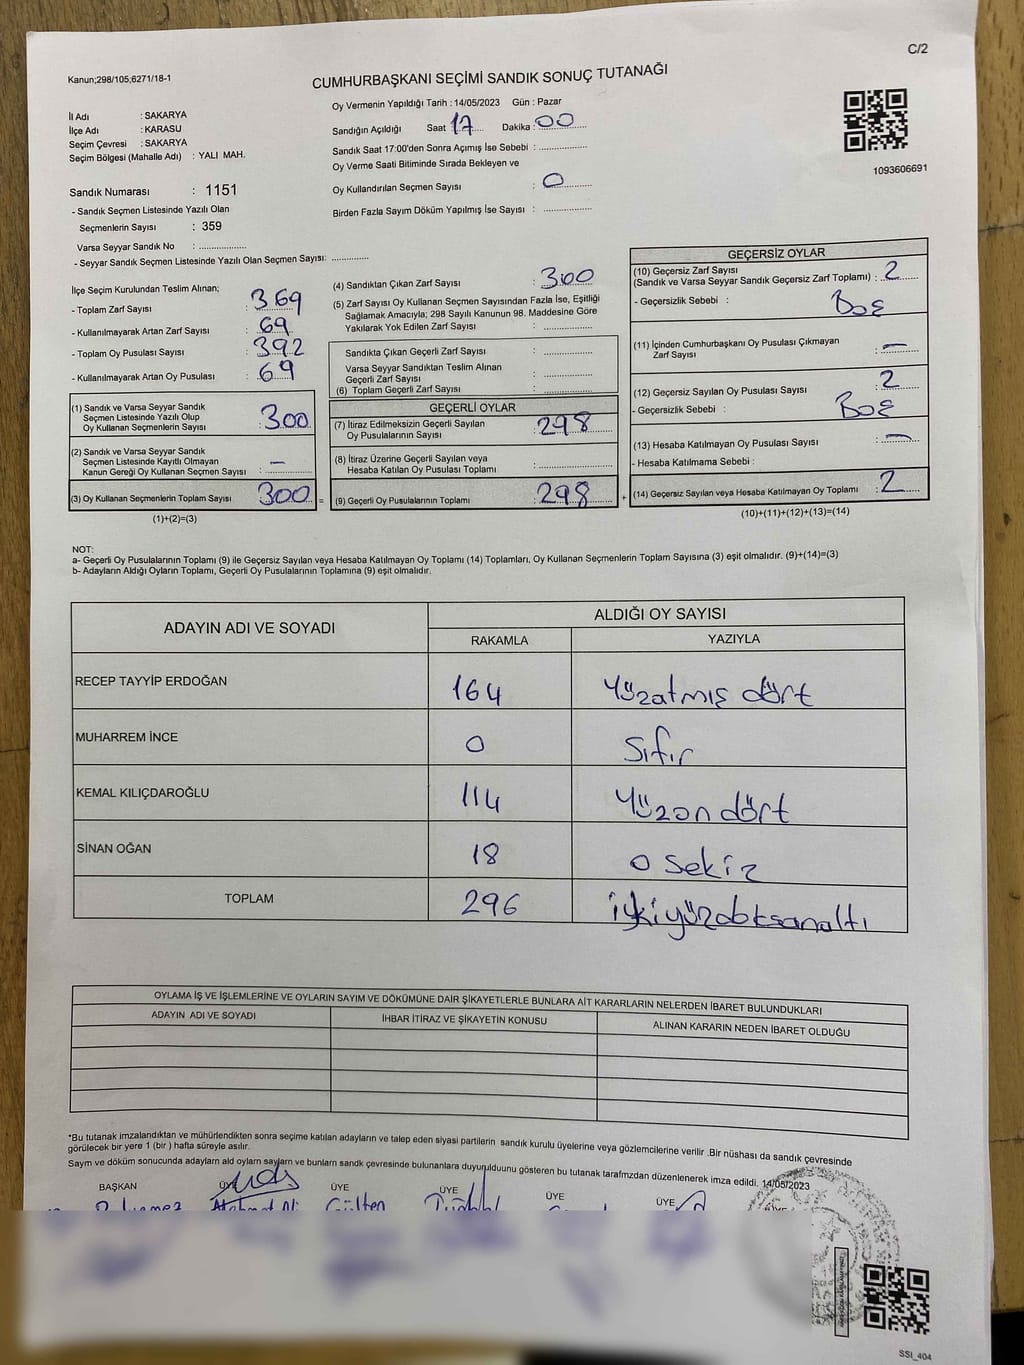 C/2
Kanun;298/105;6271/18-1
CUMHURBAŞKANI SEÇİMİ SANDIK SONUÇ TUTANAĞI
İl Adı : SAKARYA
İlçe Adı : KARASU
Seçim Çevresi : SAKARYA
Seçim Bölgesi (Mahalle Adı) : YALI MAH.
Sandık Numarası : 1151
- Sandık Seçmen Listesinde Yazılı Olan
Seçmenlerin Sayısı : 359
Varsa Seyyar Sandık No : ................
- Seyyar Sandık Seçmen Listesinde Yazılı Olan Seçmen Sayısı: ............
Oy Vermenin Yapıldığı Tarih : 14/05/2023 Gün : Pazar
Sandığın Açıldığı Saat 17 Dakika : 00
Sandık Saat 17:00'den Sonra Açımış İse Sebebi : ................
Oy Verme Saati Bitiminde Sırada Bekleyen ve
Oy Kullandırılan Seçmen Sayısı : 0
Birden Fazla Sayım Döküm Yapılmış İse Sayısı : ................
1093606691
İlçe Seçim Kurulundan Teslim Alınan;
- Toplam Zarf Sayısı : 369
- Kullanılmayarak Artan Zarf Sayısı : 69
- Toplam Oy Pusulası Sayısı : 392
- Kullanılmayarak Artan Oy Pusulası : 69
(1) Sandık ve Varsa Seyyar Sandık
Seçmen Listesinde Yazılı Olup
Oy Kullanan Seçmenlerin Sayısı : 300
(2) Sandık ve Varsa Seyyar Sandık
Seçmen Listesinde Kayıtlı Olmayan
Kanun Gereği Oy Kullanan Seçmen Sayısı : -
(3) Oy Kullanan Seçmenlerin Toplam Sayısı 300 =
(1)+(2)=(3)
(4) Sandıktan Çıkan Zarf Sayısı : 300
(5) Zarf Sayısı Oy Kullanan Seçmen Sayısından Fazla İse, Eşitliği
Sağlamak Amacıyla; 298 Sayılı Kanunun 98. Maddesine Göre
Yakılarak Yok Edilen Zarf Sayısı : ................
Sandıkta Çıkan Geçerli Zarf Sayısı : ................
Varsa Seyyar Sandıktan Teslim Alınan
Geçerli Zarf Sayısı : ................
(6) Toplam Geçerli Zarf Sayısı : ................
GEÇERLİ OYLAR
(7) İtiraz Edilmeksizin Geçerli Sayılan
Oy Pusulalarının Sayısı : 298
(8) İtiraz Üzerine Geçerli Sayılan veya
Hesaba Katılan Oy Pusulası Toplamı : ................
(9) Geçerli Oy Pusulalarının Toplamı : 298 +
GEÇERSİZ OYLAR
(10) Geçersiz Zarf Sayısı
(Sandık ve Varsa Seyyar Sandık Geçersiz Zarf Toplamı) : 2
- Geçersizlik Sebebi : Boş
(11) İçinden Cumhurbaşkanı Oy Pusulası Çıkmayan
Zarf Sayısı : -
(12) Geçersiz Sayılan Oy Pusulası Sayısı : 2
- Geçersizlik Sebebi : Boş
(13) Hesaba Katılmayan Oy Pusulası Sayısı : -
- Hesaba Katılmama Sebebi :
(14) Geçersiz Sayılan veya Hesaba Katılmayan Oy Toplamı : 2
(10)+(11)+(12)+(13)=(14)
NOT:
a- Geçerli Oy Pusulalarının Toplamı (9) ile Geçersiz Sayılan veya Hesaba Katılmayan Oy Toplamı (14) Toplamları, Oy Kullanan Seçmenlerin Toplam Sayısına (3) eşit olmalıdır. (9)+(14)=(3)
b- Adayların Aldığı Oyların Toplamı, Geçerli Oy Pusulalarının Toplamına (9) eşit olmalıdır.
ADAYIN ADI VE SOYADI ALDIĞI OY SAYISI
RAKAMLA YAZIYLA
RECEP TAYYİP ERDOĞAN 164 Yüzatmış dört
MUHARREM İNCE 0 Sıfır
KEMAL KILIÇDAROĞLU 114 Yüzon dört
SİNAN OĞAN 18 o sekiz
TOPLAM 296
OYLAMA İŞ VE İŞLEMLERİNE VE OYLARIN SAYIM VE DÖKÜMÜNE DAİR ŞİKAYETLERLE BUNLARA AİT KARARLARIN NELERDEN İBARET BULUNDUKLARI
ADAYIN ADI VE SOYADI İHBAR İTİRAZ VE ŞİKAYETİN KONUSU ALINAN KARARIN NEDEN İBARET OLDUĞU
*Bu tutanak imzalandıktan ve mühürlendikten sonra seçime katılan adayların ve talep eden siyasi partilerin sandık kurulu üyelerine veya gözlemcilerine verilir .Bir nüshası da sandık çevresinde
görülecek bir yere 1 (bir ) hafta süreyle asılır.
Sayım ve döküm sonucunda adayların ald oyların sayların ve bunların sandk çevresinde bulunanlara duyurulduunu gösteren bu tutanak tarafmzdan düzenlenerek imza edildi. 14/05/2023
BAŞKAN ÜYE ÜYE ÜYE ÜYE ÜYE ÜYE
Gülten
SSI_404